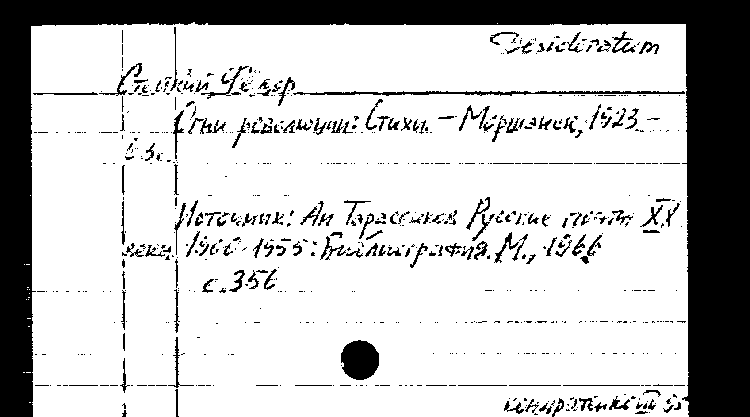 Desideratum
Стецкий, Фёдор
Огни революции: Стихи. – Моршанск, 1923 –
63с.
Источник: Ан Тарасенков Русские поэты XX
века 1900-1955: Библиография. М., 1966
с. 356
Кондратенко III 95